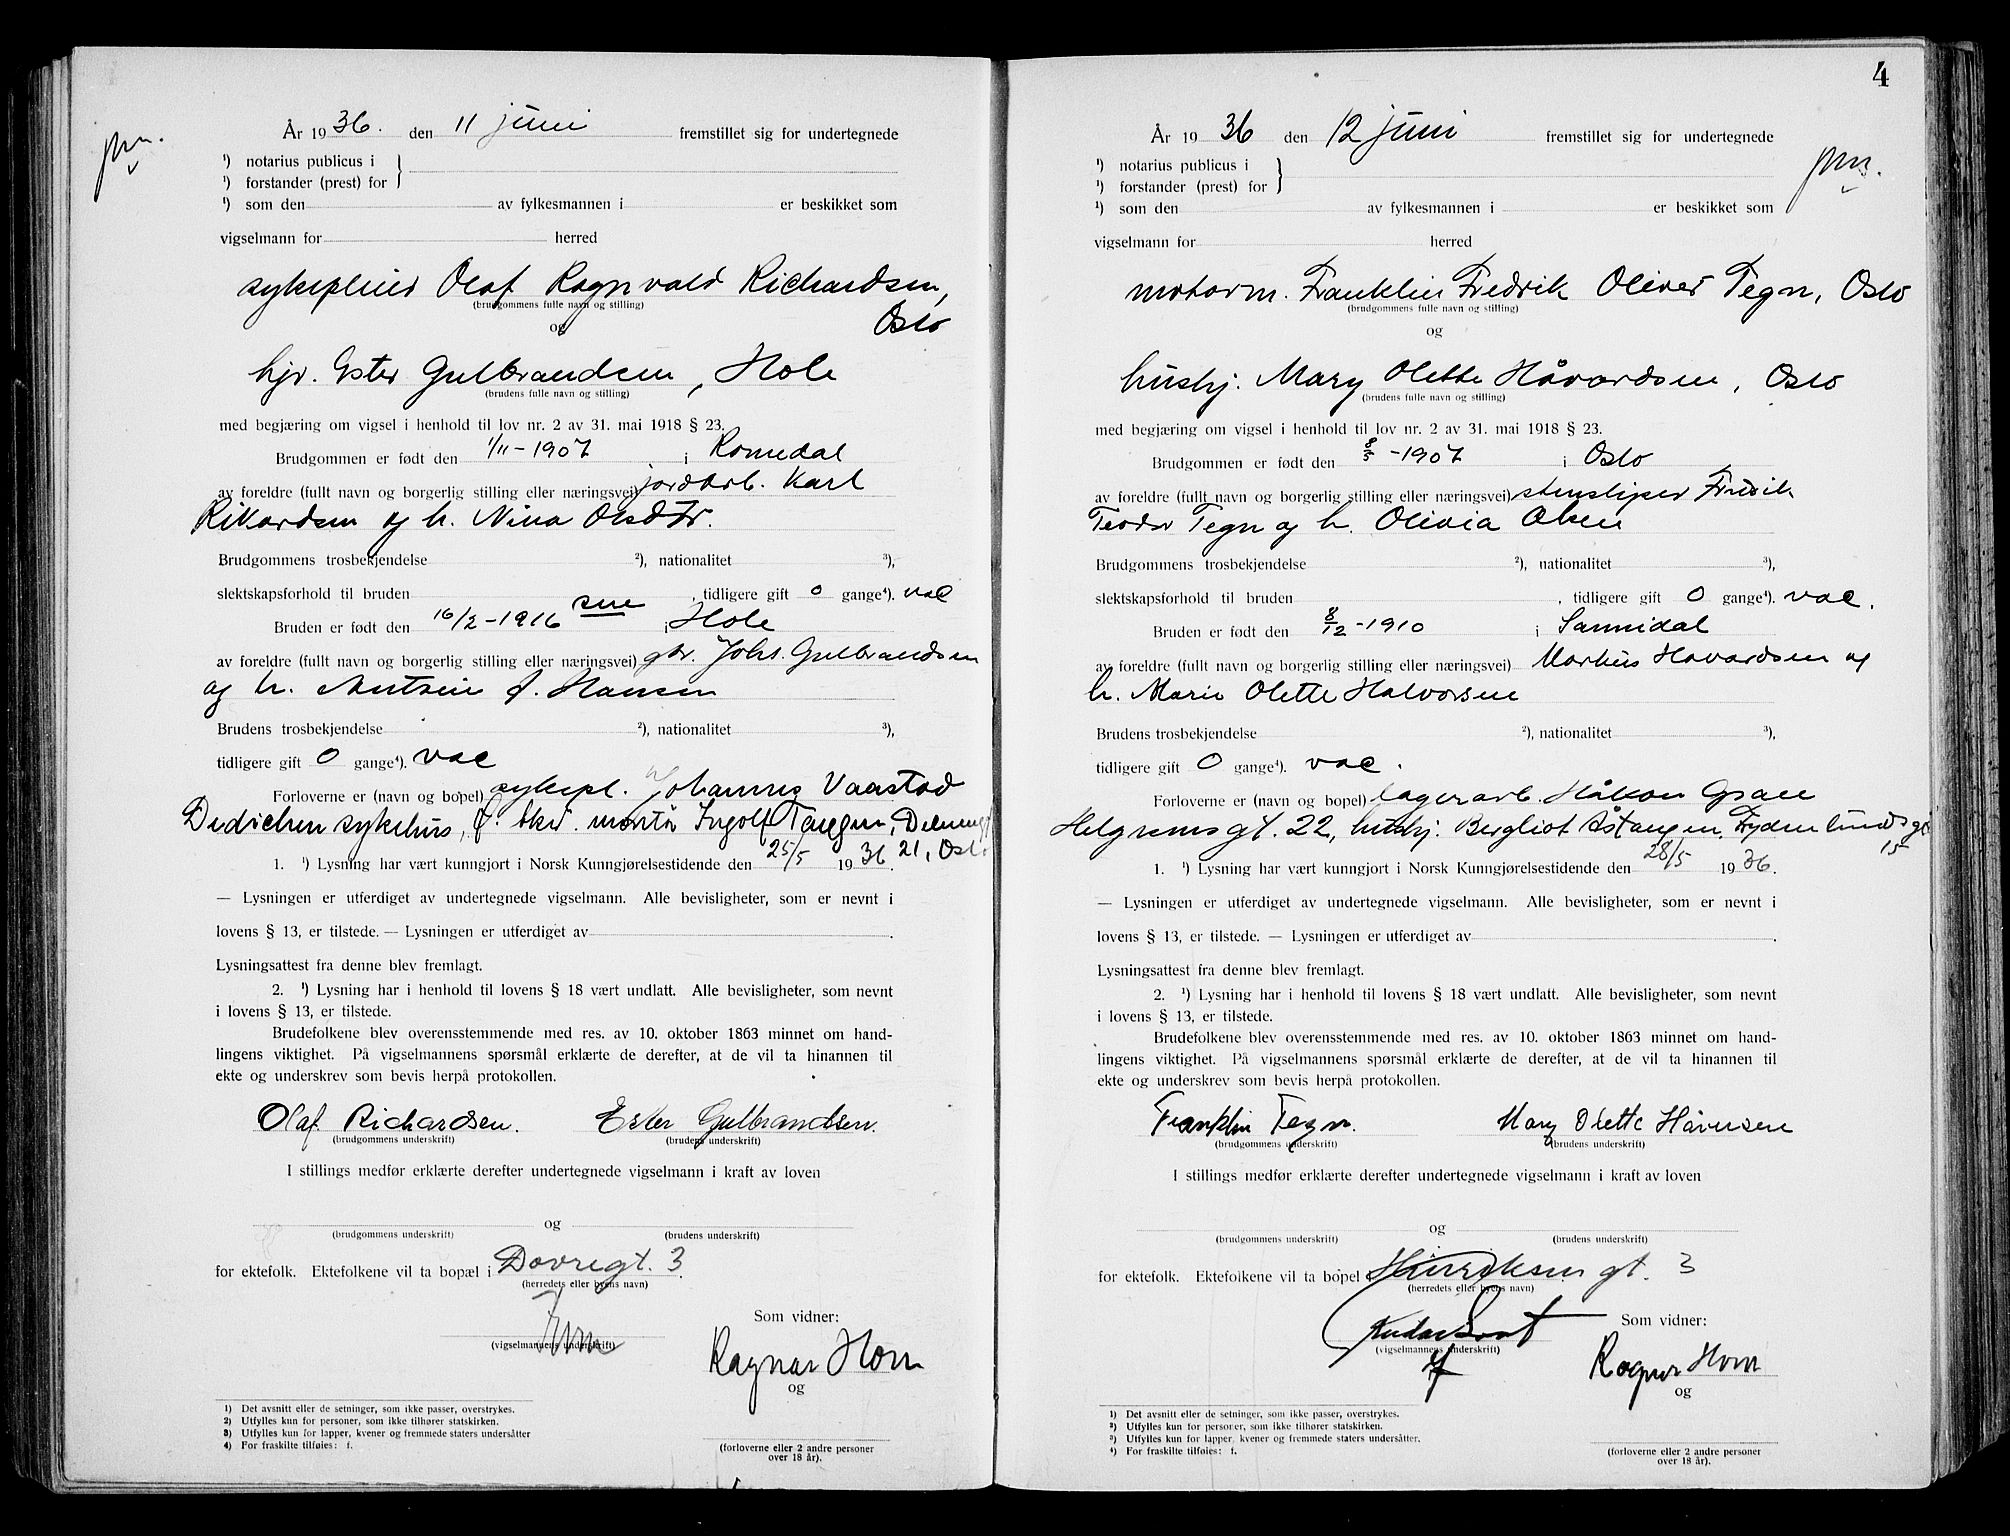 pm.
År 1936. den 11 juni fremstillet sig for undertegnede
¹) notarius publicus i
¹) forstander (prest) for
¹) som den av fylkesmannen i er beskikket som
vigselmann for herred
sykepleier Olaf Ragnvald Richardsen,
(brudgommens fulle navn og stilling)
og Oslo
hjv. Ester Gulbrandsen, Hole
(brudens fulle navn og stilling)
med begjæring om vigsel i henhold til lov nr. 2 av 31. mai 1918 § 23.
Brudgommen er født den 1/11-1907 i Romedal
av foreldre (fullt navn og borgerlig stilling eller næringsvei) jordarb. Karl
Rikardsen og h. Nina Olsdtr.
Brudgommens trosbekjendelse ²), nationalitet ³),
slektskapsforhold til bruden , tidligere gift 0 gange⁴). vac
Bruden er født den 16/2-1916 i Hole
av foreldre (fullt navn og borgerlig stilling eller næringsvei) gbr. Johs. Gulbrandsen
og h. f. Hansen
Brudens trosbekjendelse ²), nationalitet ³),
tidligere gift 0 gange⁴). vac
Forloverne er (navn og bopel) sykepl. Johannes Vaastad
Dedichen sykehus, montør Ingolf Tangen,
21, Oslo
1. ¹) Lysning har vært kunngjort i Norsk Kunngjørelsestidende den 25/5 1936.
— Lysningen er utferdiget av undertegnede vigselmann. Alle bevisligheter, som er nevnt i
lovens § 13, er tilstede. — Lysningen er utferdiget av .
Lysningsattest fra denne blev fremlagt.
2. ¹) Lysning har i henhold til lovens § 18 vært undlatt. Alle bevisligheter, som nevnt
i lovens § 13, er tilstede.
Brudefolkene blev overensstemmende med res. av 10. oktober 1863 minnet om hand-
lingens viktighet. På vigselmannens spørsmål erklærte de derefter, at de vil ta hinannen til
ekte og underskrev som bevis herpå protokollen.
Olaf Richardsen. Ester Gulbrandsen.
(brudgommens underskrift) (brudens underskrift)
I stillings medfør erklærte derefter undertegnede vigselmann i kraft av loven
og
(brudgommens underskrift) (brudens underskrift)
for ektefolk. Ektefolkene vil ta bopæl i Dovregt. 3.
(herredets eller byens navn)
Som vidner:
(vigselmannens underskrift)
Ragnar Horn
og
1) Det avsnitt eller de setninger, som ikke passer, overstrykes.
2) Utfylles kun for personer, som ikke tilhører statskirken.
3) Utfylles kun for lapper, kvener og fremmede staters undersåtter
4) For fraskilte tilføies: f.
(forloverne eller 2 andre personer
over 18 år).
4
År 1936 den 12 juni fremstillet sig for undertegnede
pm.
¹) notarius publicus i
¹) forstander (prest) for
¹) som den av fylkesmannen i er beskikket som
vigselmann for herred
motorm. Franklin Fredrik Oliver Tegn, Oslo
(brudgommens fulle navn og stilling)
og
hushj. Mary Olette Håvardsen, Oslo
(brudens fulle navn og stilling)
med begjæring om vigsel i henhold til lov nr. 2 av 31. mai 1918 § 23.
Brudgommen er født den -1907 i Oslo
av foreldre (fullt navn og borgerlig stilling eller næringsvei) stensliper Fredrik
Teodor Tegn og h. Olivia Olsen
Brudgommens trosbekjendelse ²), nationalitet ³),
slektskapsforhold til bruden , tidligere gift 0 gange⁴). vac.
Bruden er født den 8/12-1910 i Sannidal
av foreldre (fullt navn og borgerlig stilling eller næringsvei) Markus Havardsen og
h. Marie Olette Halvorsen
Brudens trosbekjendelse ²), nationalitet ³),
tidligere gift 0 gange⁴). vac.
Forloverne er (navn og bopel) lagerarb. Håkon
Helgesens gt. 22, hushj. Bergliot Åstangen, Frydenlundsgt
15
1. ¹) Lysning har vært kunngjort i Norsk Kunngjørelsestidende den 28/5 1936.
— Lysningen er utferdiget av undertegnede vigselmann. Alle bevisligheter, som er nevnt i
lovens § 13, er tilstede. — Lysningen er utferdiget av .
Lysningsattest fra denne blev fremlagt.
2. ¹) Lysning har i henhold til lovens § 18 vært undlatt. Alle bevisligheter, som nevnt
i lovens § 13, er tilstede.
Brudefolkene blev overensstemmende med res. av 10. oktober 1863 minnet om hand-
lingens viktighet. På vigselmannens spørsmål erklærte de derefter, at de vil ta hinannen til
ekte og underskrev som bevis herpå protokollen.
Franklin Tegn. Mary Olette
(brudgommens underskrift) (brudens underskrift)
I stillings medfør erklærte derefter undertegnede vigselmann i kraft av loven
og
(brudgommens underskrift) (brudens underskrift)
for ektefolk. Ektefolkene vil ta bopel i gt. 3
(herredets eller byens navn)
Som vidner:
(vigselmannens underskrift)
Ragnar Horn
og
1) Det avsnitt eller de setninger, som ikke passer, overstrykes.
2) Utfylles kun for personer, som ikke tilhører statskirken.
3) Utfylles kun for lapper, kvener og fremmede staters undersåtter.
4) For fraskilte tilføies: f.
(forloverne eller 2 andre personer
over 18 år).